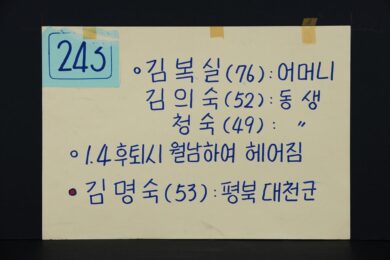 243
○ 김복실(76) : 어머니
김의숙(52) : 동생
청숙(49) : 〃
○ 1.4 후퇴시 월남하여 헤어짐
● 김명숙(53) : 평북 대천군